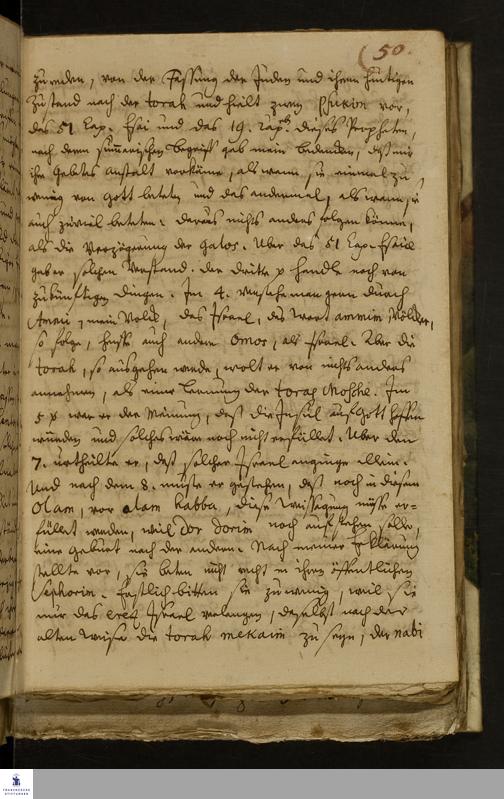 (50.
zureden, von der Fassung der Juden und ihrem hiesigen
Zustand nach der torah und hielt zwey Psukim vor,
das 51 Cap. Esai und das 19. Cap. dieses Propheten,
nach deren summarischen begriff gab mein bedencken, daß mir
ihr Gebets anstalt vorkäme, als wann sie einmal zu
wenig von Gott beteten und das andermal, als wann sie
auch zuviel beteten. daraus nichts anders folgen könne,
als die Verzögerung der Galos. Über das 51 Cap. Esaiä
gab er solchen Verstand. der dritte p handle noch von
zukünftigen dingen. Im 4. verstehe man gern durch
Ammi, mein Volck, das Israel, das wort ammim Völcker,
so folge, heiße auch andere Omos, als Israel. Aber die
torah, so ausgehen werde, wolt er von nichts anders
annehmen, als einer Lernung der torah Moshe. Im
5 p war er der Meinung, daß die Insul auf Gott hoffen
würden und solches wäre noch nicht erfüllet. Über den
7. urtheilte er, daß solcher Israel anginge allein.
Und nach dem 8. muste er gestehen, daß noch in diesem
Olam, vor olam habba, diese Weissagung müsse er-
füllet werden, weil Dor Dorim noch aufstehen solle,
eine Geburt nach der andern. Nach meiner Erklärung
stellte vor, sie beten nicht recht in ihren öffentlichen
Sephorim. Erstlich bitten sie zu wenig, weil sie
nur das erez Israel verlangen, daselbst nach der
alten weise die torah mekaim zu seyn, der nabi
FRANCKESCHE
STIFTUNGEN